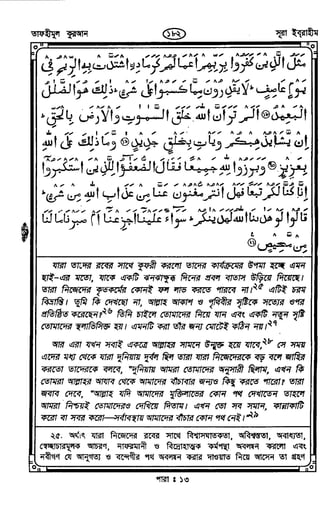 তাফহীমুল কুরআন ১৮২ সূরা ইবরাহীম
مَثَلُ الَّذِينَ كَفَرُوا بِرَبِّهِمْ أَعْمَالُهُمْ كَرَمَادِ ۨ اشْتَدَّتْ بِهِ الرِّيحُ فِي
يَوْمٍ عَاصِفٍ ۖ لَا يَقْدِرُونَ مِمَّا كَسَبُوا عَلَىٰ شَيْءٍ ۚ ذَٰلِكَ هُوَ الضَّلَالُ
الْبَعِيدُ ۝ أَلَمْ تَرَ أَنَّ اللَّهَ خَلَقَ السَّمَاوَاتِ وَالْأَرْضَ بِالْحَقِّ ۚ
إِنْ يَشَأْ يُذْهِبْكُمْ وَيَأْتِ بِخَلْقٍ جَدِيدٍ ۝ وَمَا ذَٰلِكَ عَلَى اللَّهِ
بِعَزِيزٍ ۝ وَبَرَزُوا لِلَّهِ جَمِيعًا فَقَالَ الضُّعَفَاءُ لِلَّذِينَ اسْتَكْبَرُوا
إِنَّا كُنَّا لَكُمْ تَبَعًا فَهَلْ أَنْتُمْ مُغْنُونَ عَنَّا مِنْ عَذَابِ اللَّهِ مِنْ شَيْءٍ ۚ
قَالُوا لَوْ هَدَانَا اللَّهُ لَهَدَيْنَاكُمْ ۖ سَوَاءٌ عَلَيْنَا أَجَزِعْنَا أَمْ صَبَرْنَا مَا لَنَا
مِنْ مَحِيصٍ ۝
যারা তাদের রবের সাথে কুফরী করলো তাদের কার্যক্রমের উপমা হচ্ছে এমন
ছাই-এর মতো, যাকে একটি ঝনঝাক্ষুব্ধ দিনের প্রবল বাতাস উড়িয়ে দিয়েছে।
তারা নিজেদের কৃতকর্মের কোনই ফল লাভ করতে পারবে না।২৫ এটিই চরম
বিভ্রান্তি। তুমি কি দেখছো না, আল্লাহ আকাশ ও পৃথিবীর সৃষ্টিকে সত্যের ওপর
প্রতিষ্ঠিত করেছেন?২৬ তিনি চাইলে তোমাদের নিয়ে যান এবং একটি নতুন সৃষ্টি
তোমাদের স্থলাভিষিক্ত হয়। এমনটি করা তাঁর জন্য মোটেই কঠিন নয়।২৭
আর এরা যখন সবাই একত্রে আল্লাহর সামনে উন্মুক্ত হয়ে যাবে,২৮ সে সময়
এদের মধ্য থেকে যারা দুনিয়ায় দুর্বল ছিল তারা যারা নিজেদেরকে বড় বলে জাহির
করতো তাদেরকে বলবে, "দুনিয়ায় আমরা তোমাদের অনুসারী ছিলাম, এখন কি
তোমরা আল্লাহর আযাব থেকে আমাদের বাঁচাবার জন্যও কিছু করতে পারো? তারা
জবাব দেবে, "আল্লাহ যদি আমাদের মুক্তিলাভের কোন পথ দেখাতেন তাহলে
আমরা নিশ্চয়ই তোমাদেরও দেখিয়ে দিতাম। এখন তো সব সমান, কান্নাকাটি
করো বা সবর করো—সর্বাবস্থায় আমাদের বাঁচার কোন পথ নেই।২৯
২৫. অর্থাৎ যারা নিজেদের রবের সাথে বিশ্বাসঘাতকতা, অবিশ্বস্ততা, অবাধ্যতা,
স্বেচ্ছাচারমূলক আচরণ, নাফরমানী ও বিদ্রোহাত্মক কর্মপন্থা অবলম্বন করলো এবং
নবীগণ যে আনুগত্য ও বন্দেগীর পথ অবলম্বন করার দাওয়াত নিয়ে আসেন তা গ্রহণ
পারা ঃ ১৩